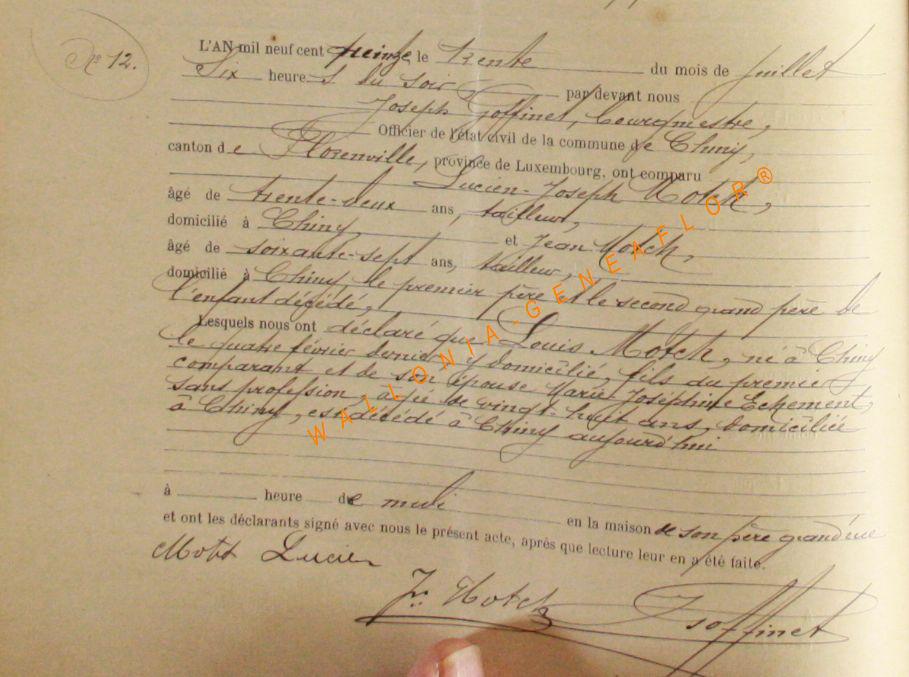 No 12.
L'AN mil neuf cent treize, le trente du mois de Juillet
Six heures du soir, par devant nous
Joseph Goffinet, Bourgmestre,
Officier de l'état civil de la commune de Chiny,
canton de Florenville, province de Luxembourg, ont comparu
Lucien-Joseph Motch,
âgé de trente-deux ans, tailleur,
domicilié à Chiny, et Jean Motch,
âgé de soixante-sept ans, tailleur,
domicilié à Chiny, le premier père et le second grand père de
l'enfant décédé,
Lesquels nous ont déclaré que Louis Motch, né à Chiny
le quatre février dernier y domicilié, fils du premier
comparant et de son épouse Marie-Joséphine Echement,
sans profession, âgée de vingt-huit ans, domiciliée
à Chiny, est décédé à Chiny aujourd'hui
à heure de midi en la maison de son père grand'rue
et ont les déclarants signé avec nous le présent acte, après que lecture leur en a été faite.
Motch Lucien
Jn Motch JGoffinet
WALLONIA-GENEAFLOR®